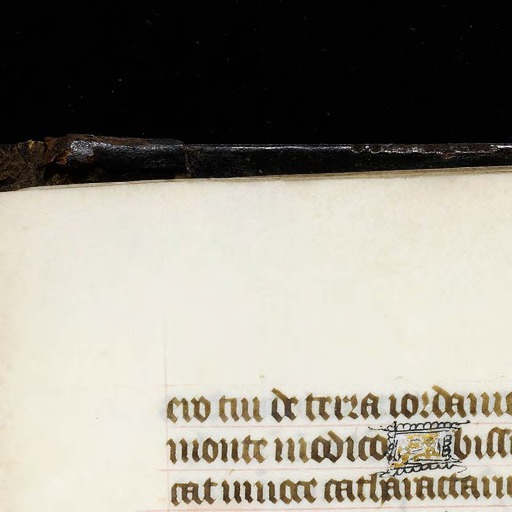 ero tui de terra iordanis
monte modico A biss
cat in uoce catharactaru